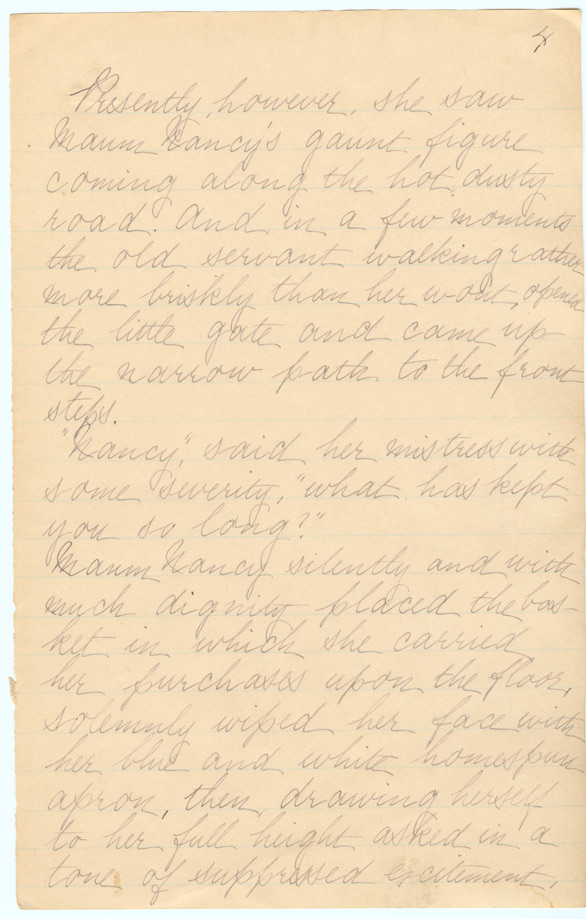 4
Presently, however, she saw
Maum Nancy's gaunt figure
coming along the hot, dusty
road. And in a few moments
the old servant walking rather
more briskly than her wont, opened
the little gate and came up
the narrow path to the front
steps.
"Nancy", said her mistress with
some severity, "what has kept
you so long?"
Maum Nancy silently and with
much dignity placed the bas-
ket in which she carried
her purchases upon the floor,
solemnly wiped her face with
her blue and white homespun
apron, then, drawing herself
to her full height asked in a
tone of suppressed excitement,